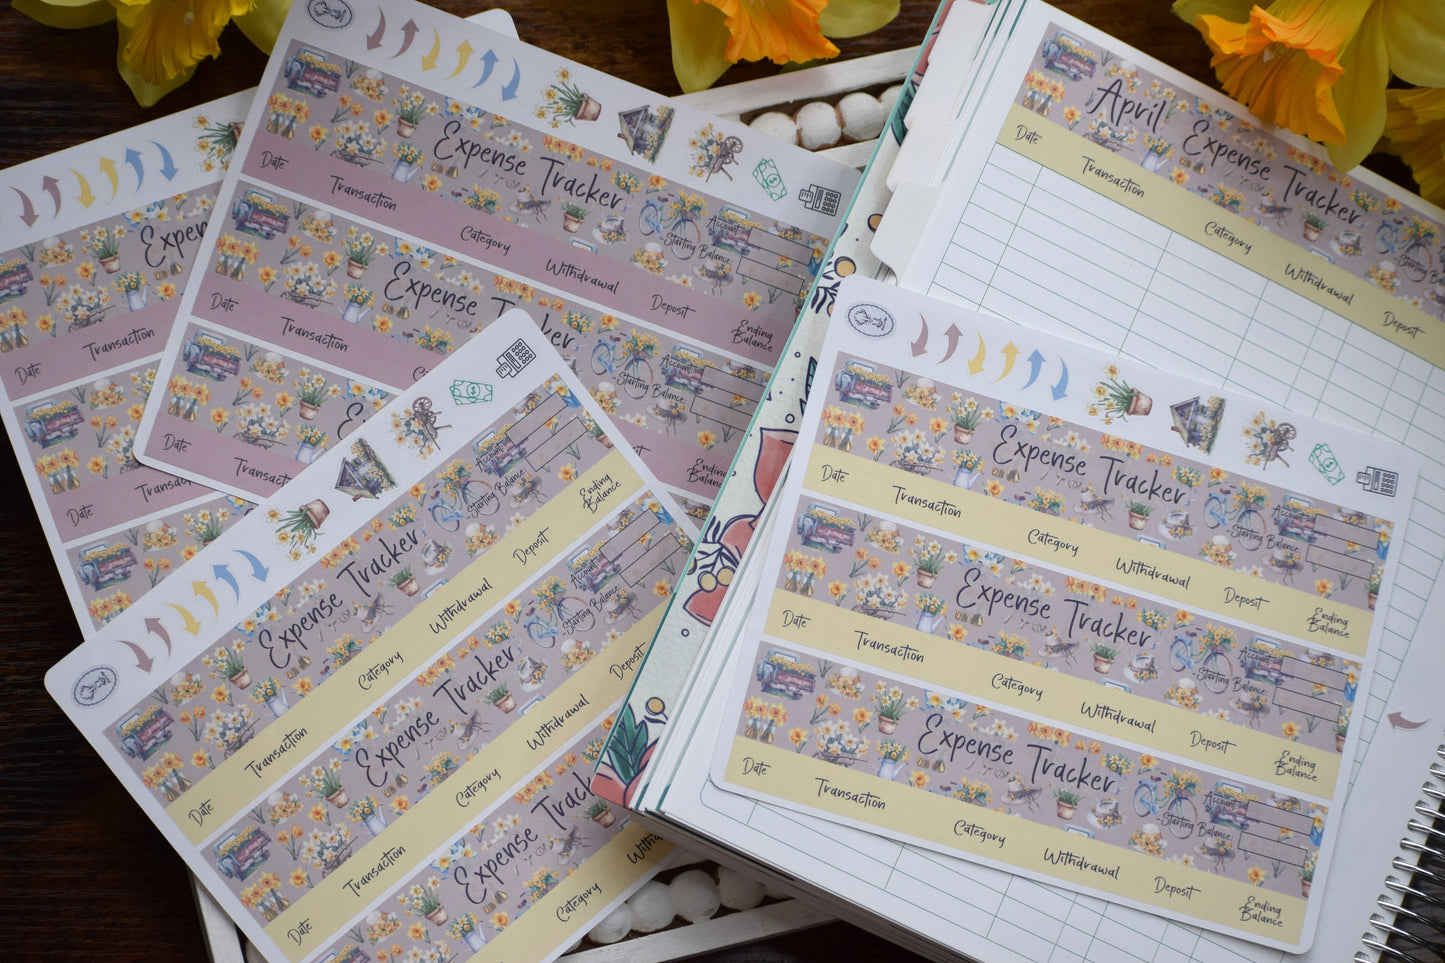 Expense Tracker
Account:
Starting Balance:
Date Transaction Category Withdrawal Deposit Ending Balance
Expense Tracker
Account:
Starting Balance:
Date Transaction
Ending Balance
Expense
Date Transaction
Date Transaction
Date
April Expense Tracker
Account:
Starting Balance:
Date Transaction Category Withdrawal Deposit
Expense Tracker
Account:
Starting Balance:
Date Transaction Category Withdrawal Deposit Ending Balance
Expense Tracker
Account:
Starting Balance:
Date Transaction Category Withdrawal Deposit
Expense Tracker
Date Transaction Category
Expense Tracker
Account:
Starting Balance:
Date Transaction Category Withdrawal Deposit Ending Balance
Expense Tracker
Account:
Starting Balance:
Date Transaction Category Withdrawal Deposit Ending Balance
Expense Tracker
Account:
Starting Balance:
Date Transaction Category Withdrawal Deposit Ending Balance